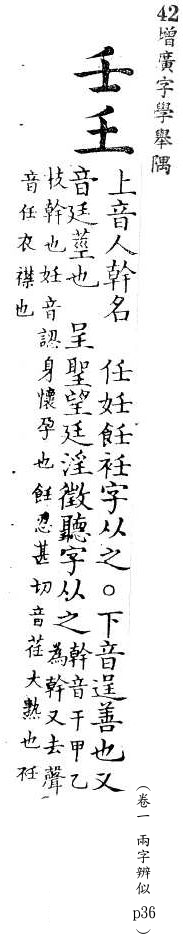 42增廣字學舉隅
壬𡈼
上音人幹名 任妊飪衽字从之。下音逞善也又
音廷莖也 呈聖望廷淫徵聽字从之
幹音干甲乙
為幹又去聲
技幹也妊音認身懷孕也飪忍甚切音荏大熟也衽
音任衣襟也
(卷一 兩字辨似 p36)